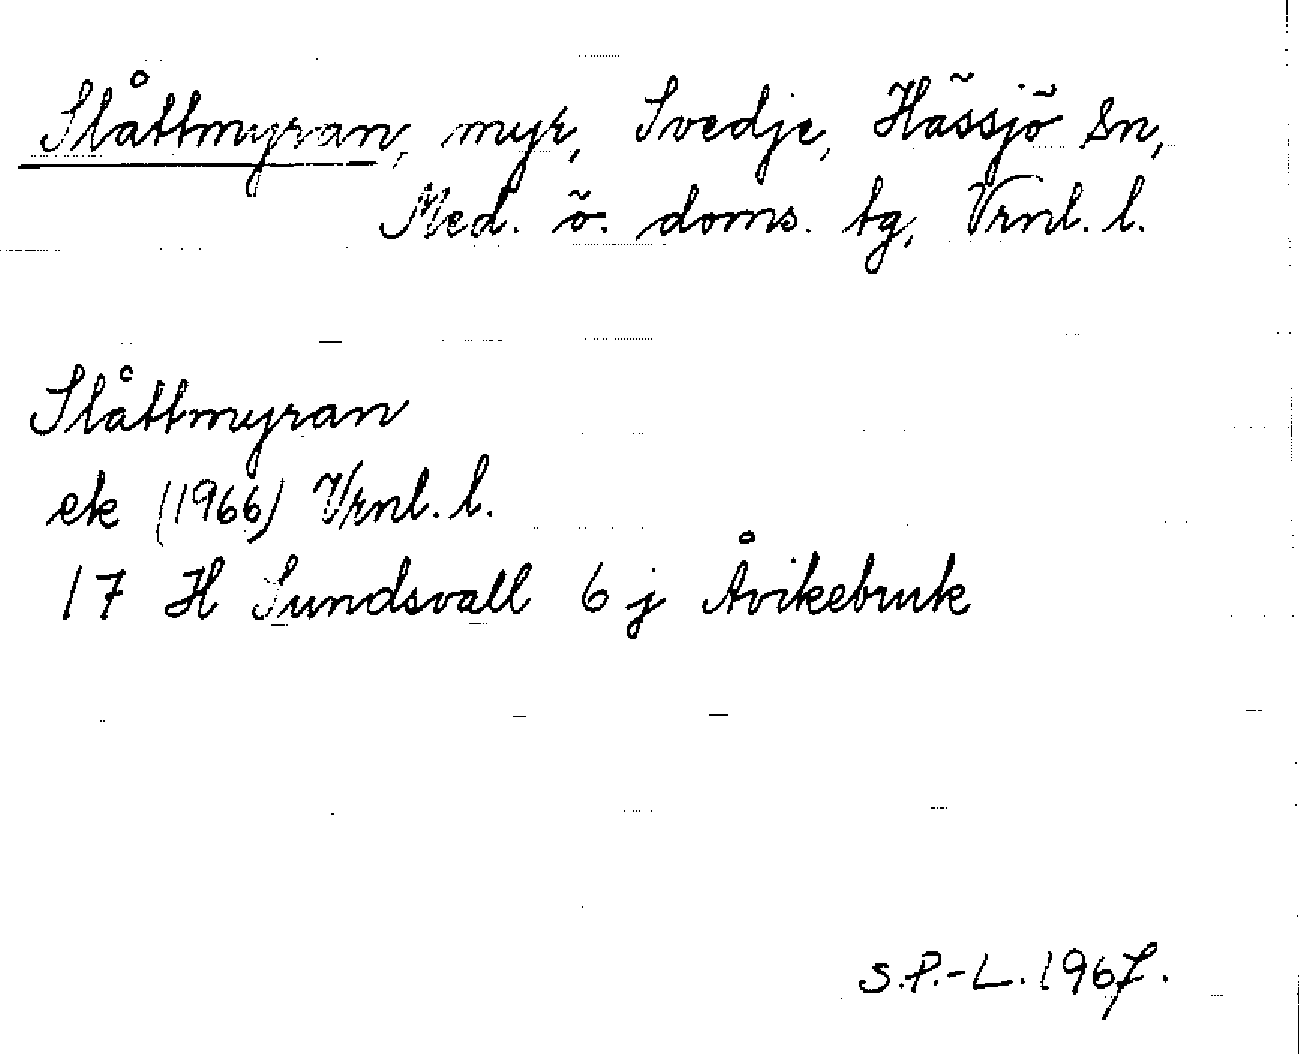 Slåttmyran, myr, Svedje, Hässjö sn,
Med. ö. doms. tg, Vrnl. l.
Slåttmyran
ek (1966) Vrnl. l.
17 H Sundsvall 6 j Åvikebruk
S.P.-L. 1967.